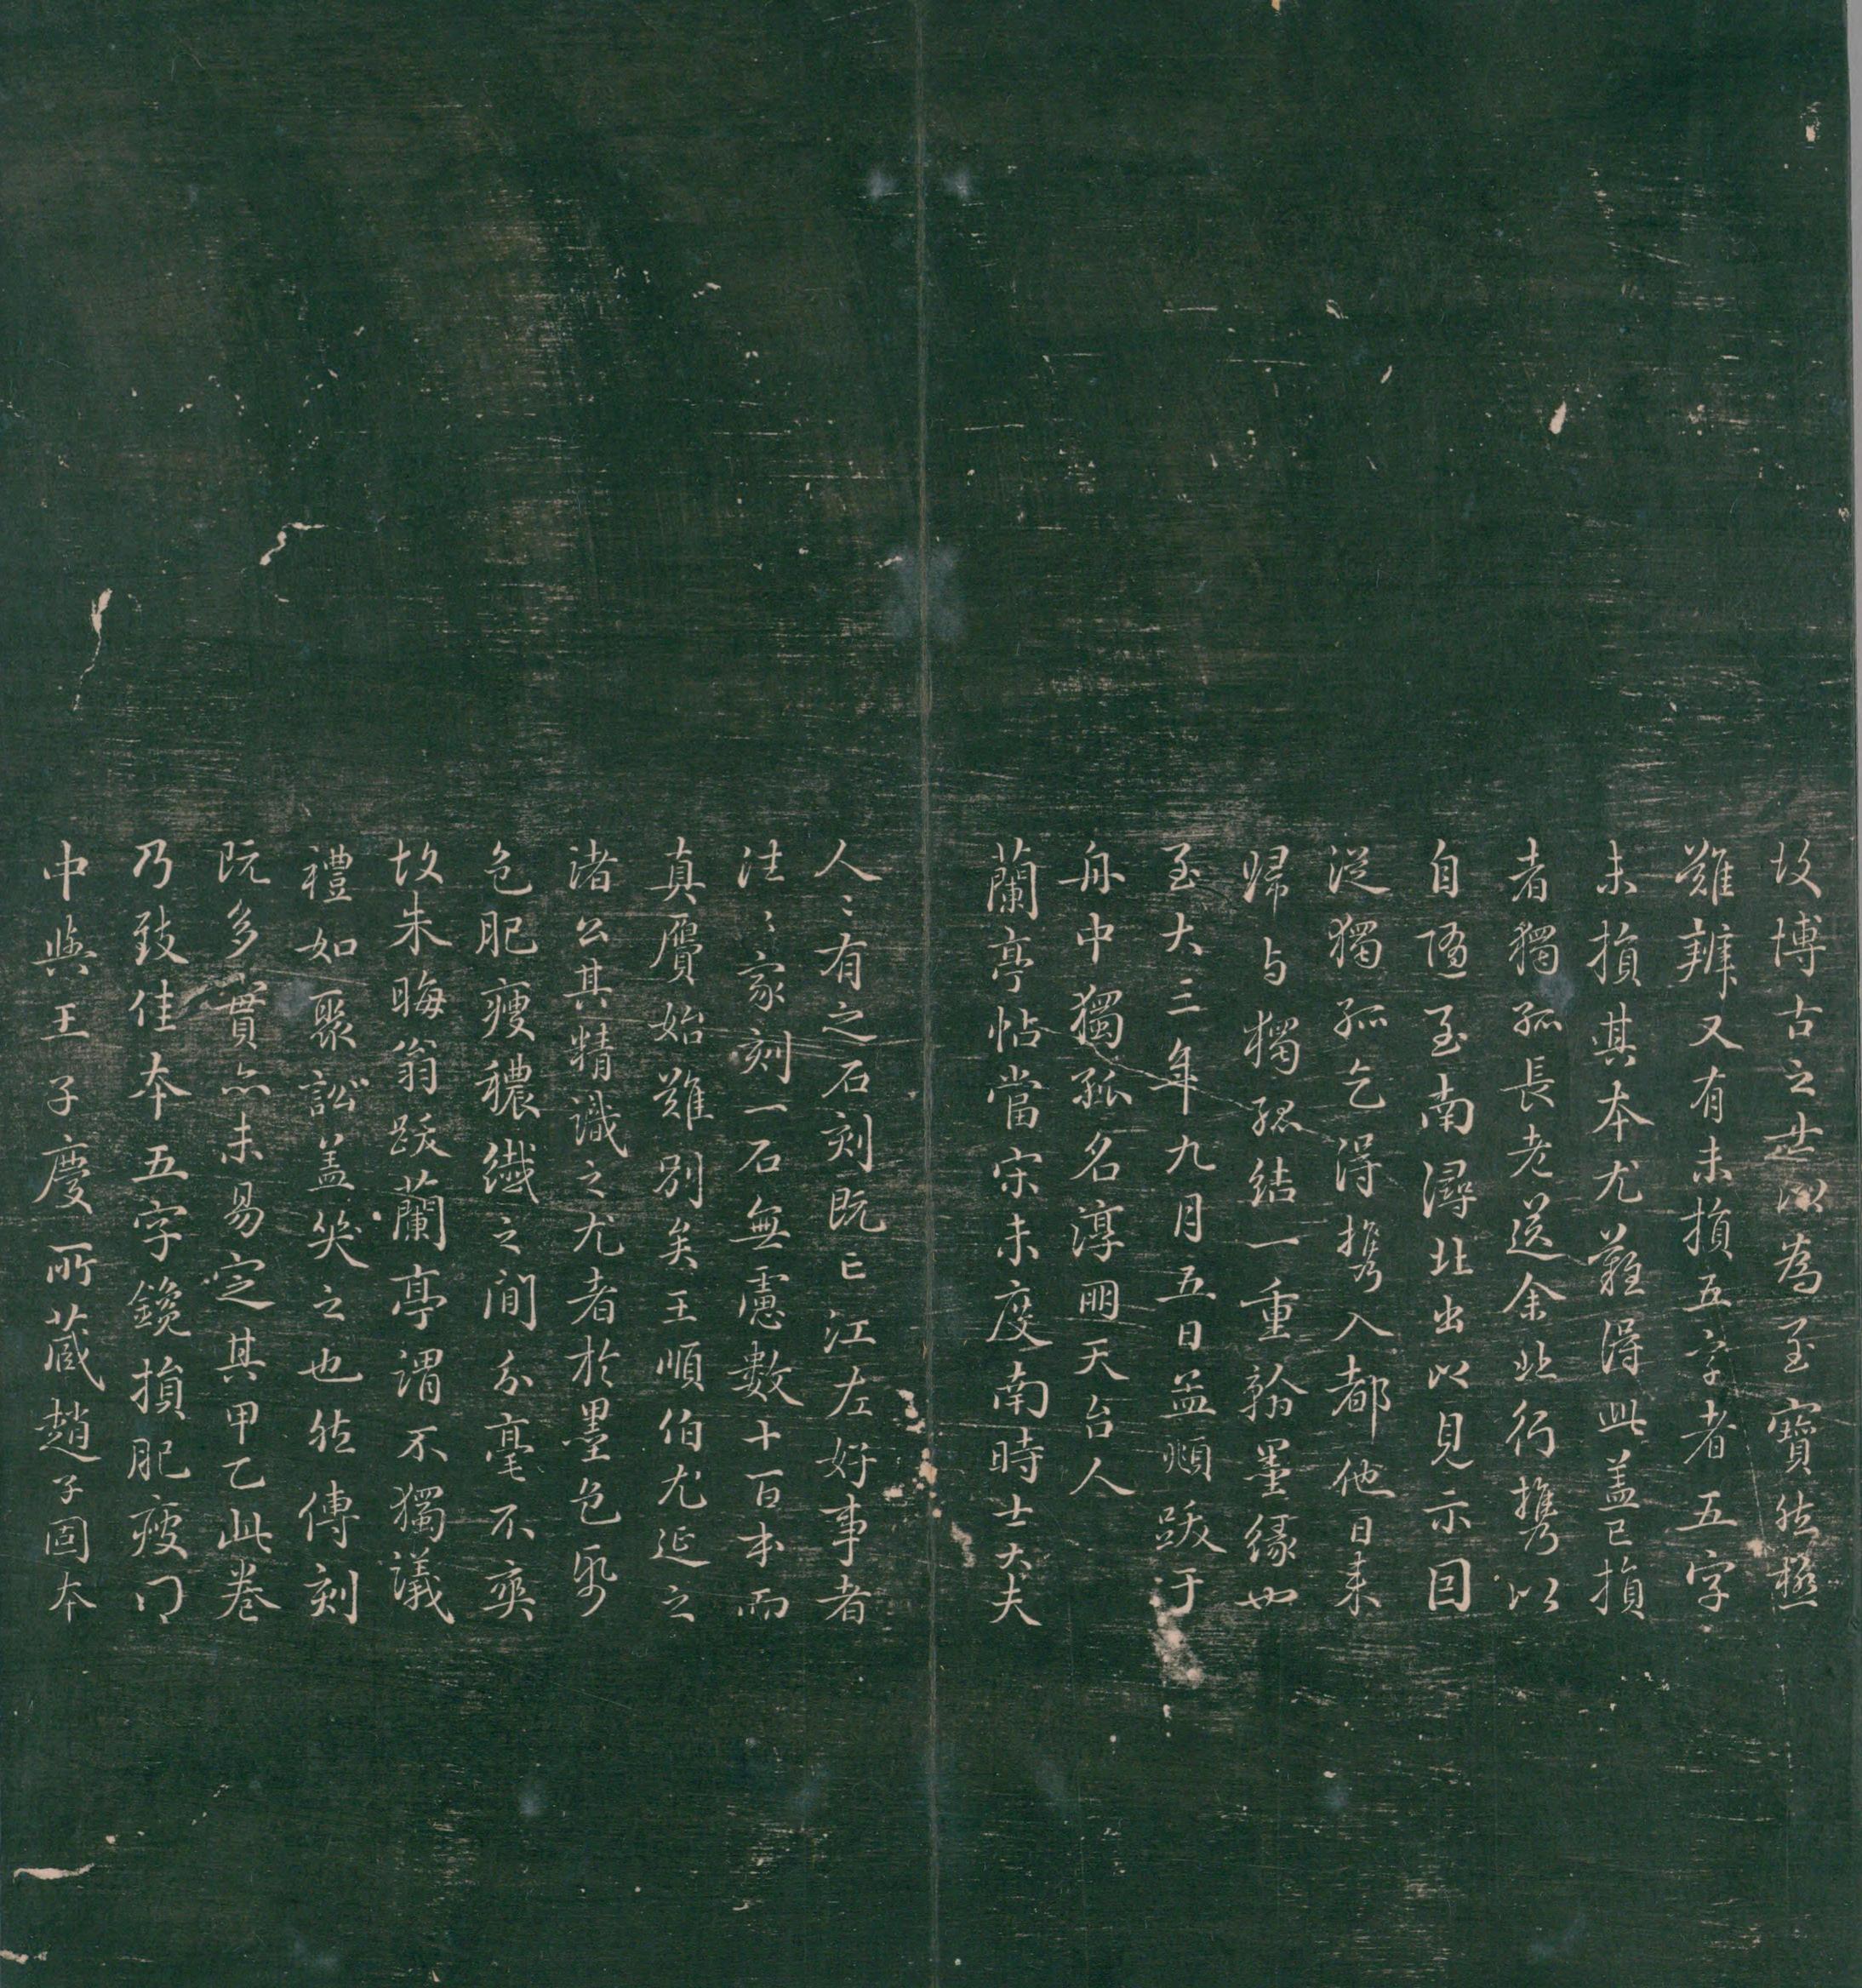 故博古之士以為至寶然極
難辨又有未損五字者五字
未損其本尤難得此盖已損
者獨孤長老送余北行攜以
自隨至南潯北出以見示因
從獨孤乞得攜入都他日来
歸与獨孤結一重翰墨緣也
至大三年九月五日孟頫跋于
舟中獨孤名淳朋天台人
蘭亭帖當宋未度南時士大夫
人〻有之石刻既亡江左好事者
往〻家刻一石無慮數十百本而
真贋始難別矣王順伯尤延之
諸公其精識之尤者於墨色紙
色肥瘦穠纖之間分毫不爽
故朱晦翁跋蘭亭謂不獨議
禮如聚訟盖笑之也然傳刻
既多實亦未易定其甲乙此卷
乃致佳本五字鑱損肥瘦
中與王子慶所藏趙子固本